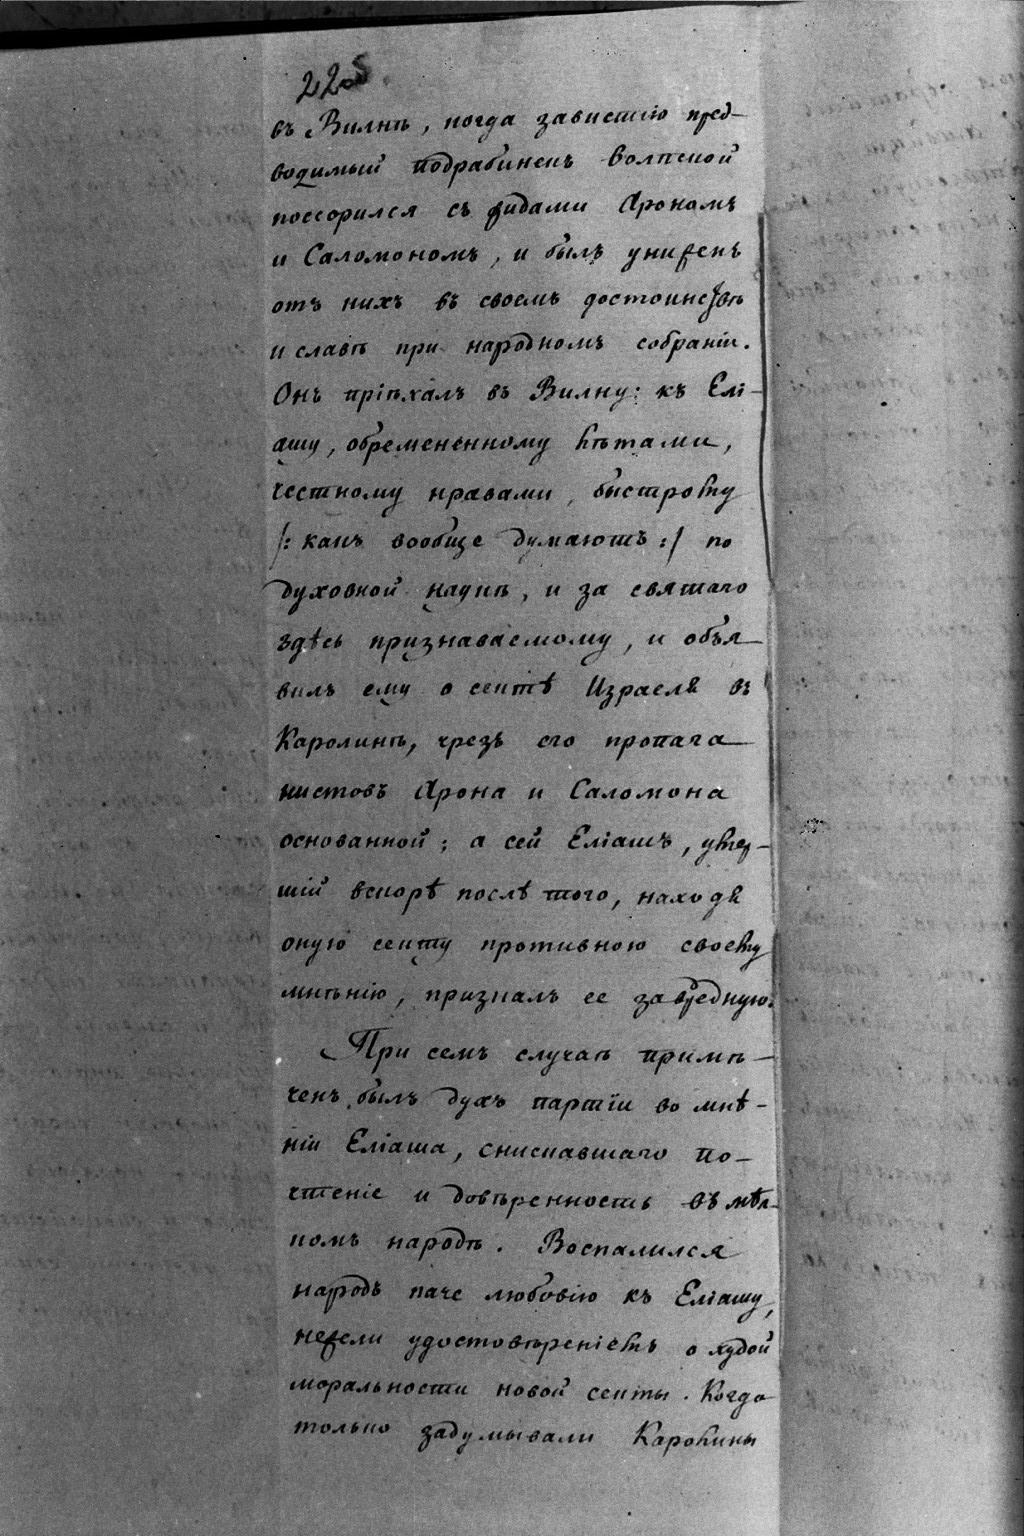 225
въ Вилнѣ, когда завистію пред-
водимый подрабинекъ Волпской
поссорился съ жидами Арономъ
и Саломономъ, и былъ униженъ
отъ нихъ въ своемъ достоинствѣ
и славѣ при народномъ собраніи.
Онъ пріѣхалъ въ Вилну: къ Елі-
ашу, обремененному лѣтами,
честному нравами, быстрому
/: какъ вообще думаютъ :/ по
духовной наукѣ, и за святаго
здѣсь признаваемому, и объя-
вилъ ему о сектѣ Израеля въ
Каролинѣ, чрезъ его пропага
нистовъ Арона и Саломона
основанной; а сей Еліашъ, умер-
шій вскорѣ послѣ того, находя
оную секту противною своему
мнѣнію, призналъ ее за вредную.
При семъ случаѣ примѣ-
ченъ былъ духъ партіи во мнѣ-
ніи Еліаша, снискавшаго по-
чтеніе и довѣренность въ мѣл-
комъ народѣ. Воспалился
народъ паче любовію къ Еліашу,
нежели удостовѣреніемъ о худой
моральности новой секты. Когда
только задумывали Каролины